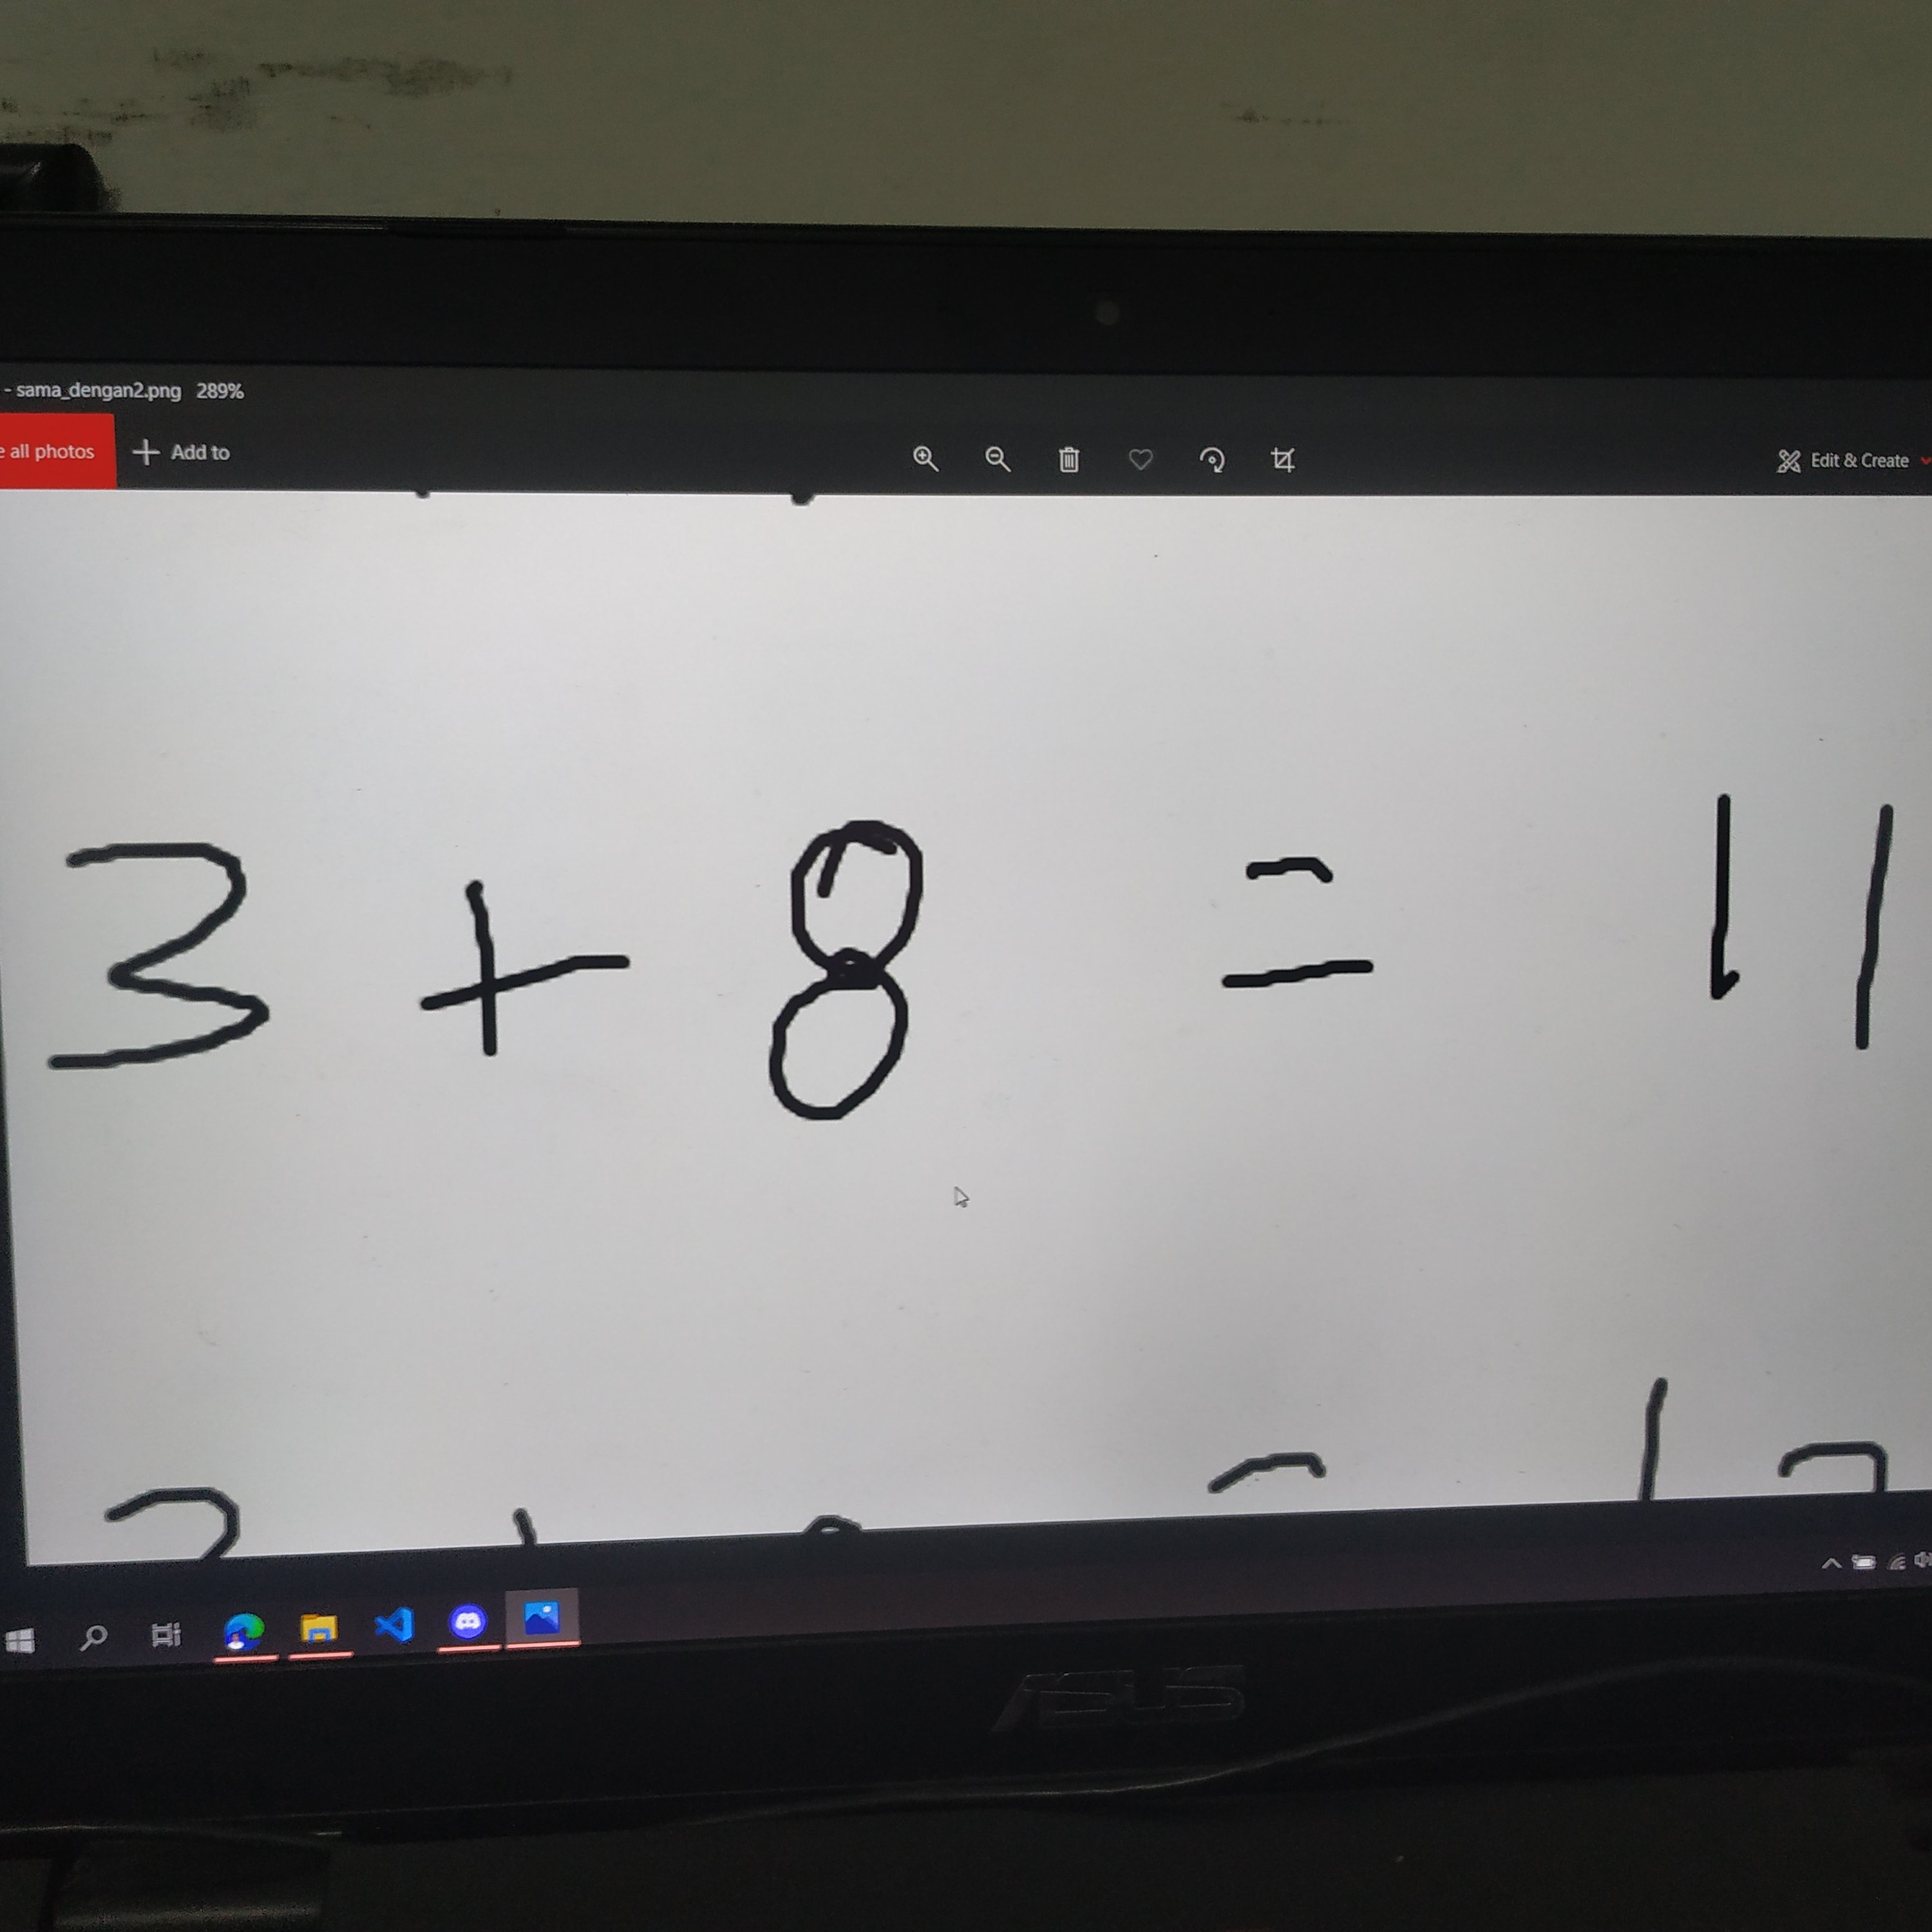 - sama_dengan2.png 289%
all photos
Add to
Edit & Create
3 + 8 = 11
ASUS